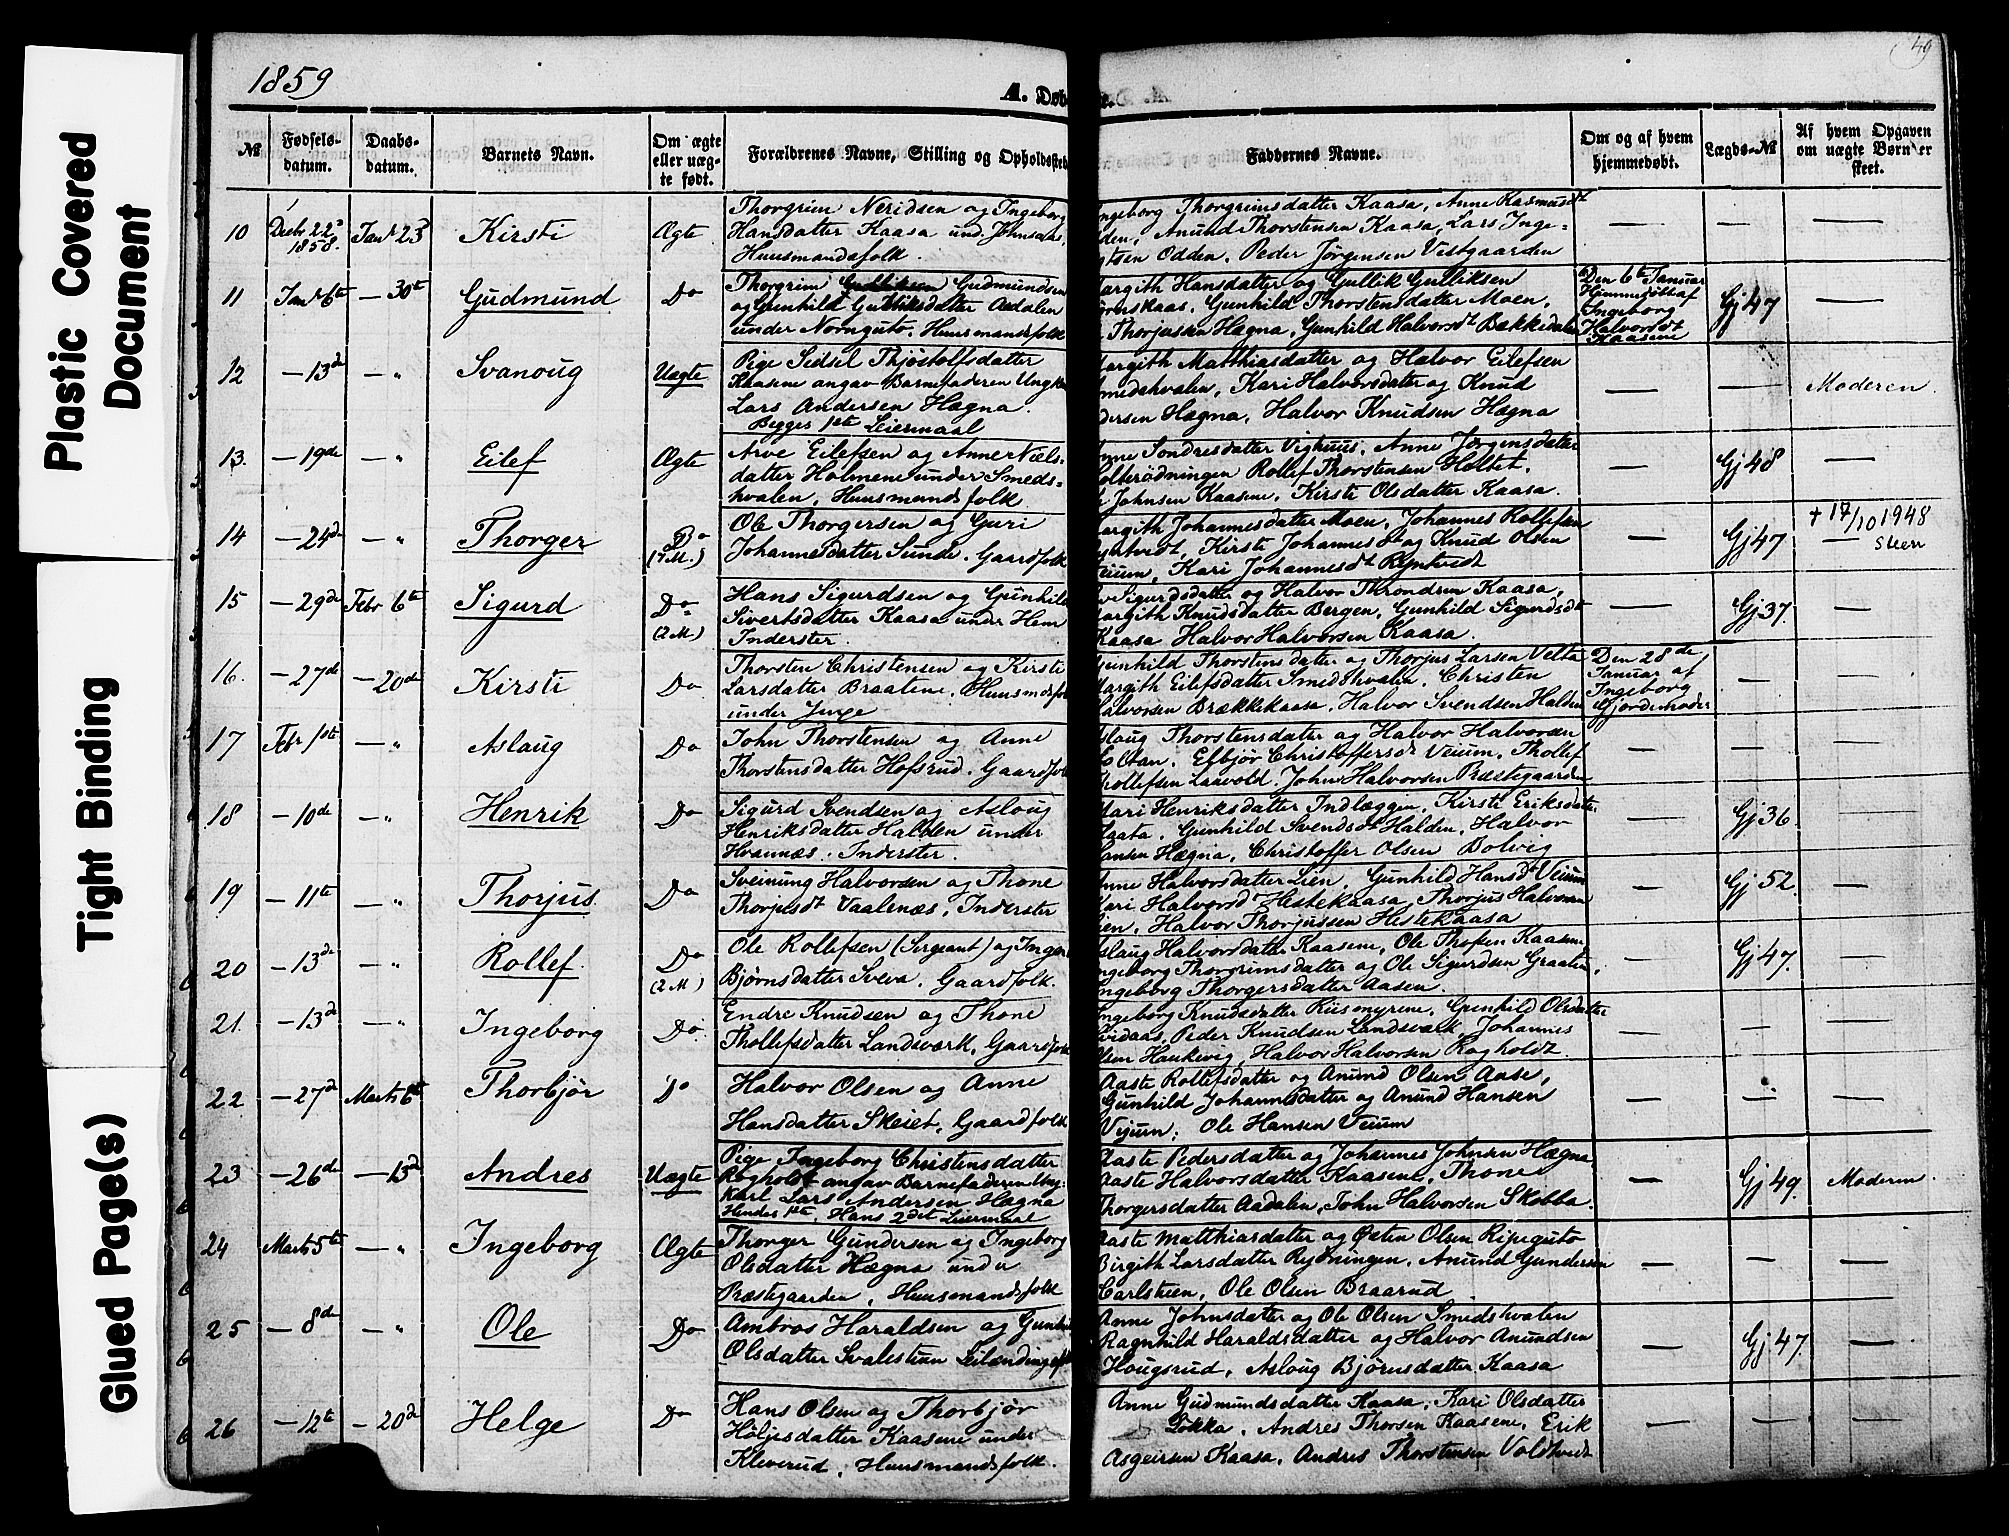 Plastic Covered
Document
Tight Binding
Glued Page(s)
1859
49
A. Døb
№
Fødsels-
datum.
Daabs-
datum.
Barnets Navn.
Om ægte
eller uæg-
te født.
Forældrenes Navne, Stilling og Opholdssted
Faddernes Navne.
Om og af hvem
hjemmedøbt.
Lægds-№
Af hvem Opgaven
om uægte Børn er
skeet.
10
Decbr 22d
1858.
Janr 23d
Kirsti
Ægte
Thorgrim Neridsen og Ingeborg
Hansdatter Kaasa und. Johnsaas,
Huusmandsfolk.
ngeborg Thorgrimsdatter Kaasa, Anne Rasmusdt
den, Anund Thorstensen Kaasa, Lars Inge-
tsen Odden, Peder Jørgensen Vestgaarden
11
Janr 6te
— 30te
Gudmund
Do
Thorgrim Gudmundsen
og Gunhild Gulliksdatter Aadalen
under Norngutø, Huusmandsfolk
argith Hansdatter og Gullik Gulliksen
ørnskaas, Gunhild Thorstensdatter Moen,
Thorjussen Hægna, Gunhild Halvorsdt Bækkedalen
Den 6te Januar
Hjemmedøbt af
Ingeborg
Halvorsdt
Kaasene
Gj 47
12
— 13d
— "
Svanoug
Uægte
Pige Sidsel Thjøstolfsdatter
Kaasene angav Barnefaderen Ungk
Lars Andersen Hægna.
Begges 1ste Leiermaal
argith Matthiasdatter og Halvor Eilefsen
medshvalen, Kari Halvorsdatter og Knud
dersen Hægna, Halvor Knudsen Hægna
Moderen
13.
— 19de
— "
Eilef
Ægte
Arve Eilefsen og Anne Niels-
datter Holmene under Smeds-
hvalen, Huusmandsfolk
nne Sondresdatter Vighuus, Anne Jørgensdatter
olterødningen Rollef Thorstensen Holtet,
Johnsen Kaasene, Kirsti Olsdatter Kaasa.
Gj 48
14
— 24d
— "
Thorger
Do
(7 M.)
Ole Thorgersen og Guri
Johannesdatter Sunde. Gaardfolk
argith Johannesdatter Moen, Johannes Rollefsen
yntvedt, Kirsti Johannesdt og Knud Olsen
eium, Kari Johannesdt Ryntvedt
Gj 47
+ 17/10 1948
Steen
15
— 29de
Febr 6te
Sigurd
Do
(2 M.)
Hans Sigurdsen og Gunhild
Sivertsdatter Kaasa under Hem
Inderster.
Sigurdsdatter og Halvor Throndsen Kaasa,
argith Knudsdatter Bergen, Gunhild Sigurdsdt
Kaasa Halvor Halvorsen Kaasa.
Gj 37.
16.
— 27de
— 20de
Kirsti
Do
Thorsten Christensen og Kirsti
Larsdatter Braatene, Huusmdsfol
under Junge
unhild Thorstensdatter og Thorjus Larsen Velta
argith Eilefsdatter Smedshvalen, Christen
alvorsen Brækkekaasa, Halvor Svendsen Halden
Den 28de
Januar af
Ingeborg
Gjordemoder
17
Febr 1ste
— "
Aslaug
Do
John Thorstensen og Anne
Thorstensdatter Hofsrud. Gaardfol
slaug Thorstensdatter og Halvor Halvorsen
oltan, Elbjør Christoffersdt Veium, Thollef
hollefsen Laavold, John Halvorsen Præstegaarden
18
— 10de
— "
Henrik
Do
Sigurd Svendsen og Aslaug
Henriksdatter Halden under
Hvannæs. Inderster.
ari Henriksdatter Indlæggen, Kirsti Eriksdatter
aata, Gunhild Svendsdt Halden, Halvor
ansen Hægna, Christoffer Olsen Bolvig
Gj 36.
19
— 11te
— "
Thorjus
Do
Sveinung Halvorsen og Thone
Thorjusdt Vaalenæs, Inderster
nne Halvorsdatter Lien, Gunhild Hansdt Veium
ari Halvorsd Hestekaasa, Thorjus Halvorsen
ien, Halvor Thorjussen Hestekaasa
Gj 52.
20
— 13de
— "
Rollef
Do
(2 M)
Ole Rollefsen (Sergeant) og Inger
Bjørnsdatter Sveva. Gaardfolk.
slaug Halvorsdattr Kaasene, Ole Thofsen Kaasene
ngeborg Thorgrimsdatter og Ole Sigurdsen Graaten,
ngeborg Thorgersdatter Aasen.
Gj 47.
21.
— 13de
— "
Ingeborg
Do.
Endre Knudsen og Thone
Thollefsdatter Landsværk, Gaardfolk
ngeborg Knudsdatter Riismyrene, Gunhild Olsdatter
vidaas, Peder Knudsen Landsværk, Johannes
lsen Haukvig, Halvor Halvorsen Rogholdt.
22
— 27d
Marts 6te
Thorbjør
Do
Halvor Olsen og Anne
Hansdatter Skeiet, Gaardfolk
Aaste Rollefsdatter og Anund Olsen Aase,
Gunhild Johannesdatter og Anund Hansen
Vejum, Ole Hansen Veium
23
— 26de
— 13d
Andres
Uægte
Pige Ingeborg Christensdatter
Rogholdt angav Barnefaderen Ung-
karl Lars Andersen Hægna
Hendes 1ste, Hans 2det Leiermaal
aste Pedersdatter og Johannes Johnsen Hægna
aste Halvorsdatter Kaasene, Thone
Thorgersdatter Aadalen, John Halvorsen Skobba.
Gj 49.
Moderen.
24
Marts 5te
— "
Ingeborg
Ægte
Thorger Gundersen og Ingeborg
Olsdatter Hægna under
Præstegaarden, Huusmandsfolk
aste Matthiasdatter og Østen Olsen Ripegutø
Birgith Larsdatter Rydningen, Anund Gundersen
Carlsteen, Ole Olsen Braarud
25
— 8de
— "
Ole
Do
Ambros Haraldsen og Gunhi
Olsdatter Svalesteen Leilændingefol
Anne Johnsdatter og Ole Olsen Smedshvalen
Ragnhild Haraldsdatter og Halvor Anundsen
Hougsrud, Aslaug Bjørnsdatter Kaasa
Gj 47.
26
— 12te
— 20de
Helge
Do
Hans Olsen og Thorbjør
Høljesdatter Kaasene under
Kleverud, Huusmandsfolk.
Anne Gudmundsdatter Kaasa, Kari Olsdatter
Løkka, Andres Thorsen Kaasene, Erik
Asgeirsen Kaasa, Andres Thorstensen Voldtvedt